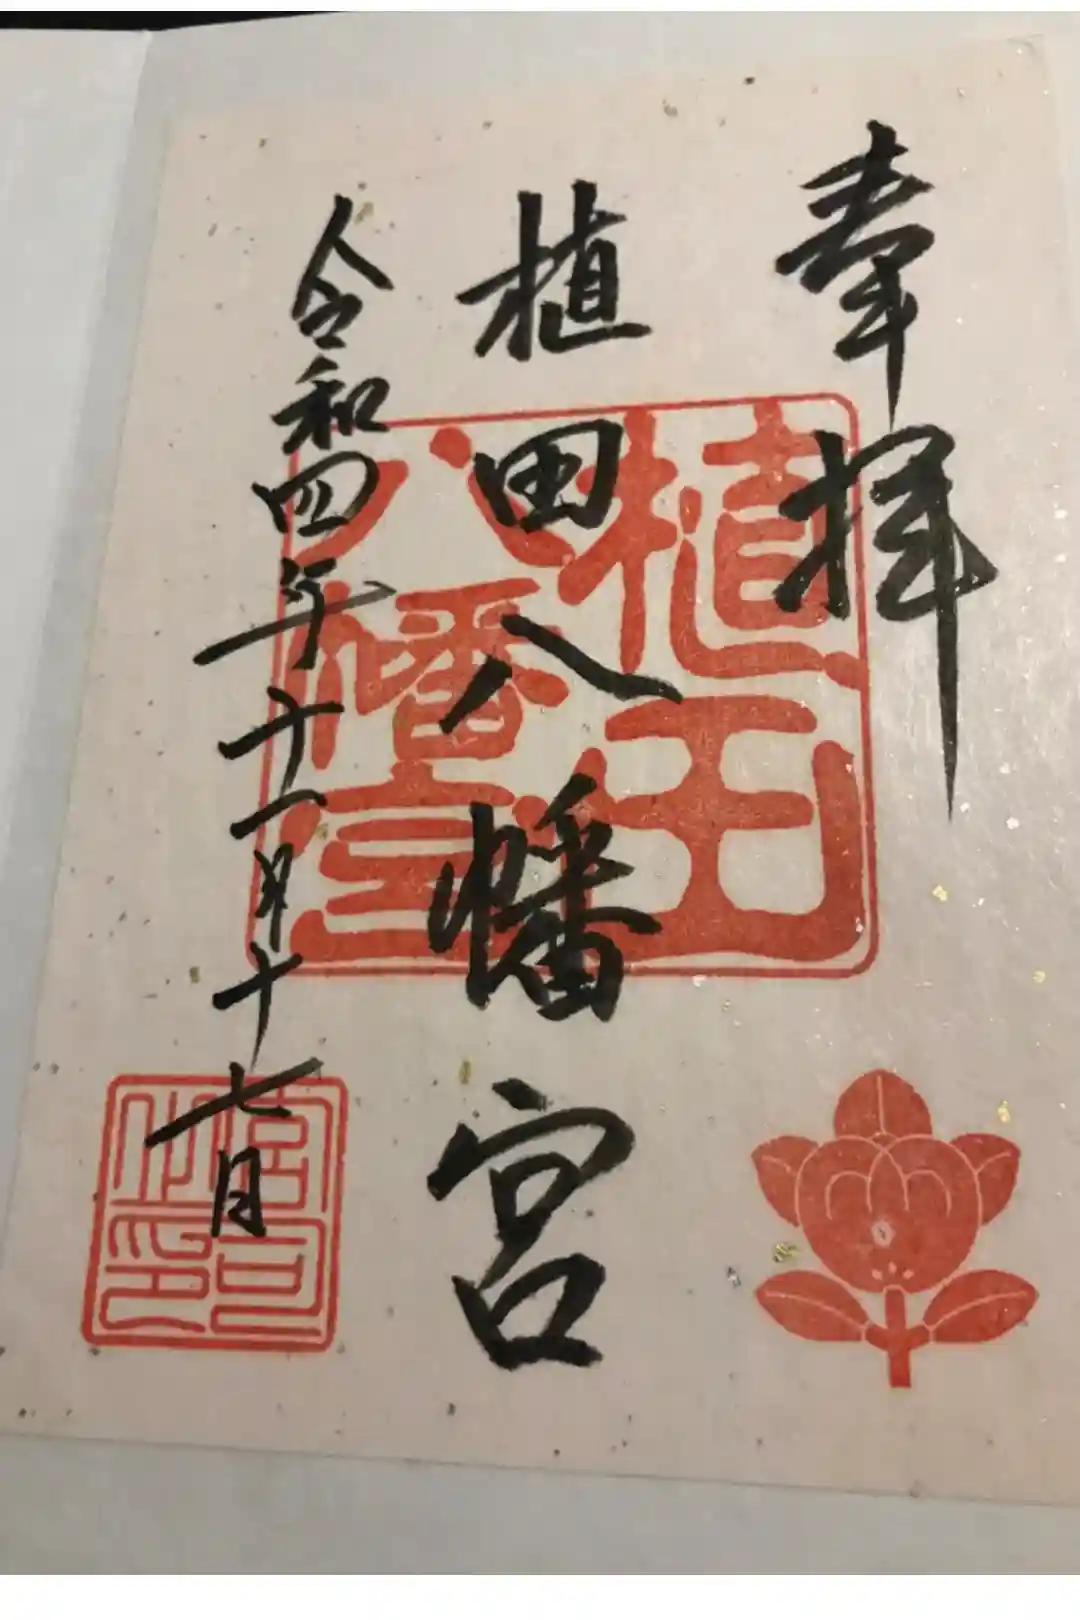 奉拝
植田八幡宮
令和四年十一月十七日
植田
八幡宮
宮司
之印